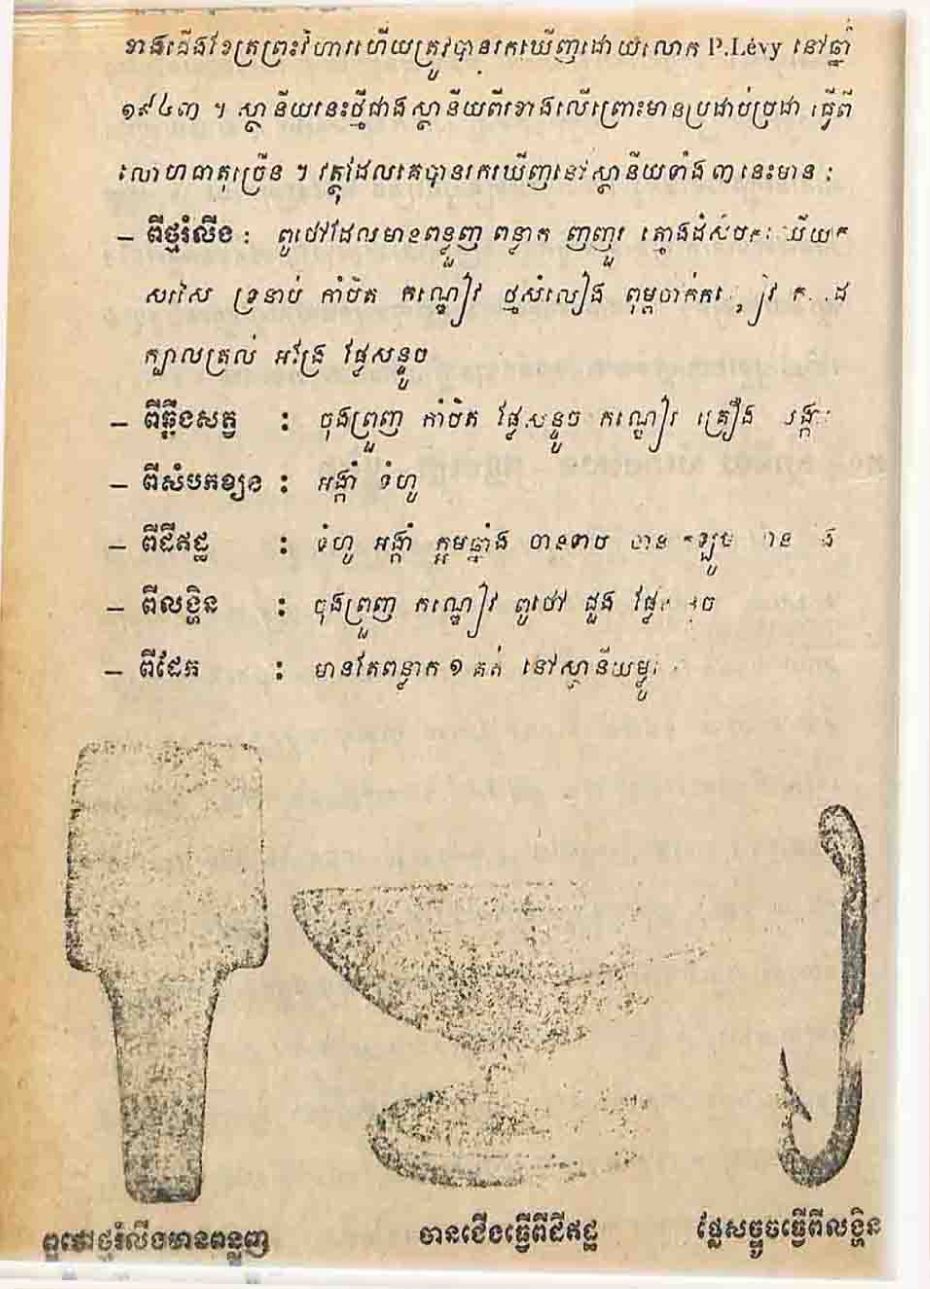 ខាងជើងខែត្រព្រះវិហារហើយត្រូវបានរកឃើញដោយលោក P.Lévy នៅឆ្នាំ
១៩៤៣ ។ ស្ថានីយនេះថ្មីជាងស្ថានីយពីរខាងលើព្រោះមានប្រដាប់ប្រដា ធ្វើពី
លោហធាតុច្រើន ។ វត្ថុដែលគេបានរកឃើញនៅស្ថានីយទាំង ៣ នេះមាន :
– ពីថ្មរំលីង : ពូថៅដែលមានពន្លួញ ពន្លាក ញញួរ ត្នោងដំសំបក
សរសៃ ទ្រនាប់ កាំបិត កណ្ឌៀវ ថ្មសំលៀង ពុម្ពចាក់
ក្បាលត្រល់ អង្រែ ផ្លែសន្ទូច
– ពីឆ្អឹងសត្វ : ចុងព្រួញ កាំបិត ផ្លែសន្ទូច កណ្ឌៀវ គ្រឿង
– ពីសំបកខ្យង : អង្កាំ ទំហូ
– ពីដីឥដ្ឋ : ទំហូ អង្កាំ ក្អមឆ្នាំង ចានទាប ចាន
– ពីលង្ហិន : ចុងព្រួញ កណ្ឌៀវ ពូថៅ ដួង
– ពីដែក : មានតែពន្លាក ១ គត់ នៅស្ថានីយម្លូ
ពូថៅថ្មរំលីងមានពន្លួញ ចានជើងធ្វើពីដីឥដ្ឋ ផ្លែសន្ទូចធ្វើពីលង្ហិន